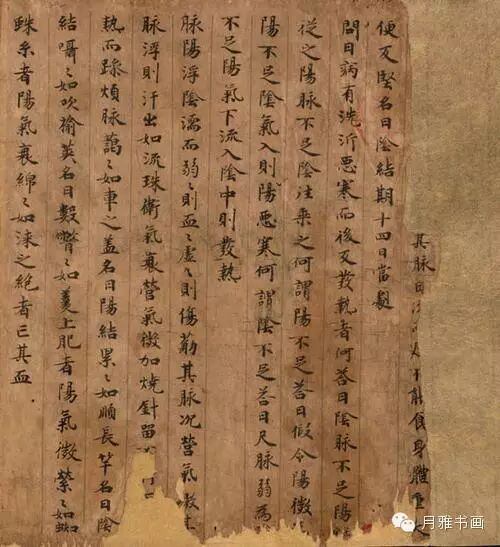 其脉自不能食身體重
便反堅名曰陰結期十四日當劇
問曰病有洗沂惡寒而後反發熱者何荅曰陰脉不足陽
從之陽脉不足陰往乗之何謂陽不足荅曰假令陽微
陽不足陰氣入則陽惡寒何謂陰不足荅曰尺脉弱為
不足陽氣下流入陰中則發熱
脉陽浮陰濡而弱〻則血〻虛〻則傷筋其脉沉營氣微
脉浮則汗出如流珠衛氣衰營氣微加燒針留
熱而躁煩脉藹〻如車之蓋名曰陽結累〻如順長竿名曰陰
結囁〻如吹榆莢名曰數瞥〻如羹上肥者陽氣微縈〻如蜘
蛛糸者陽氣衰綿〻如漆之絶者亡其血
月雅书画